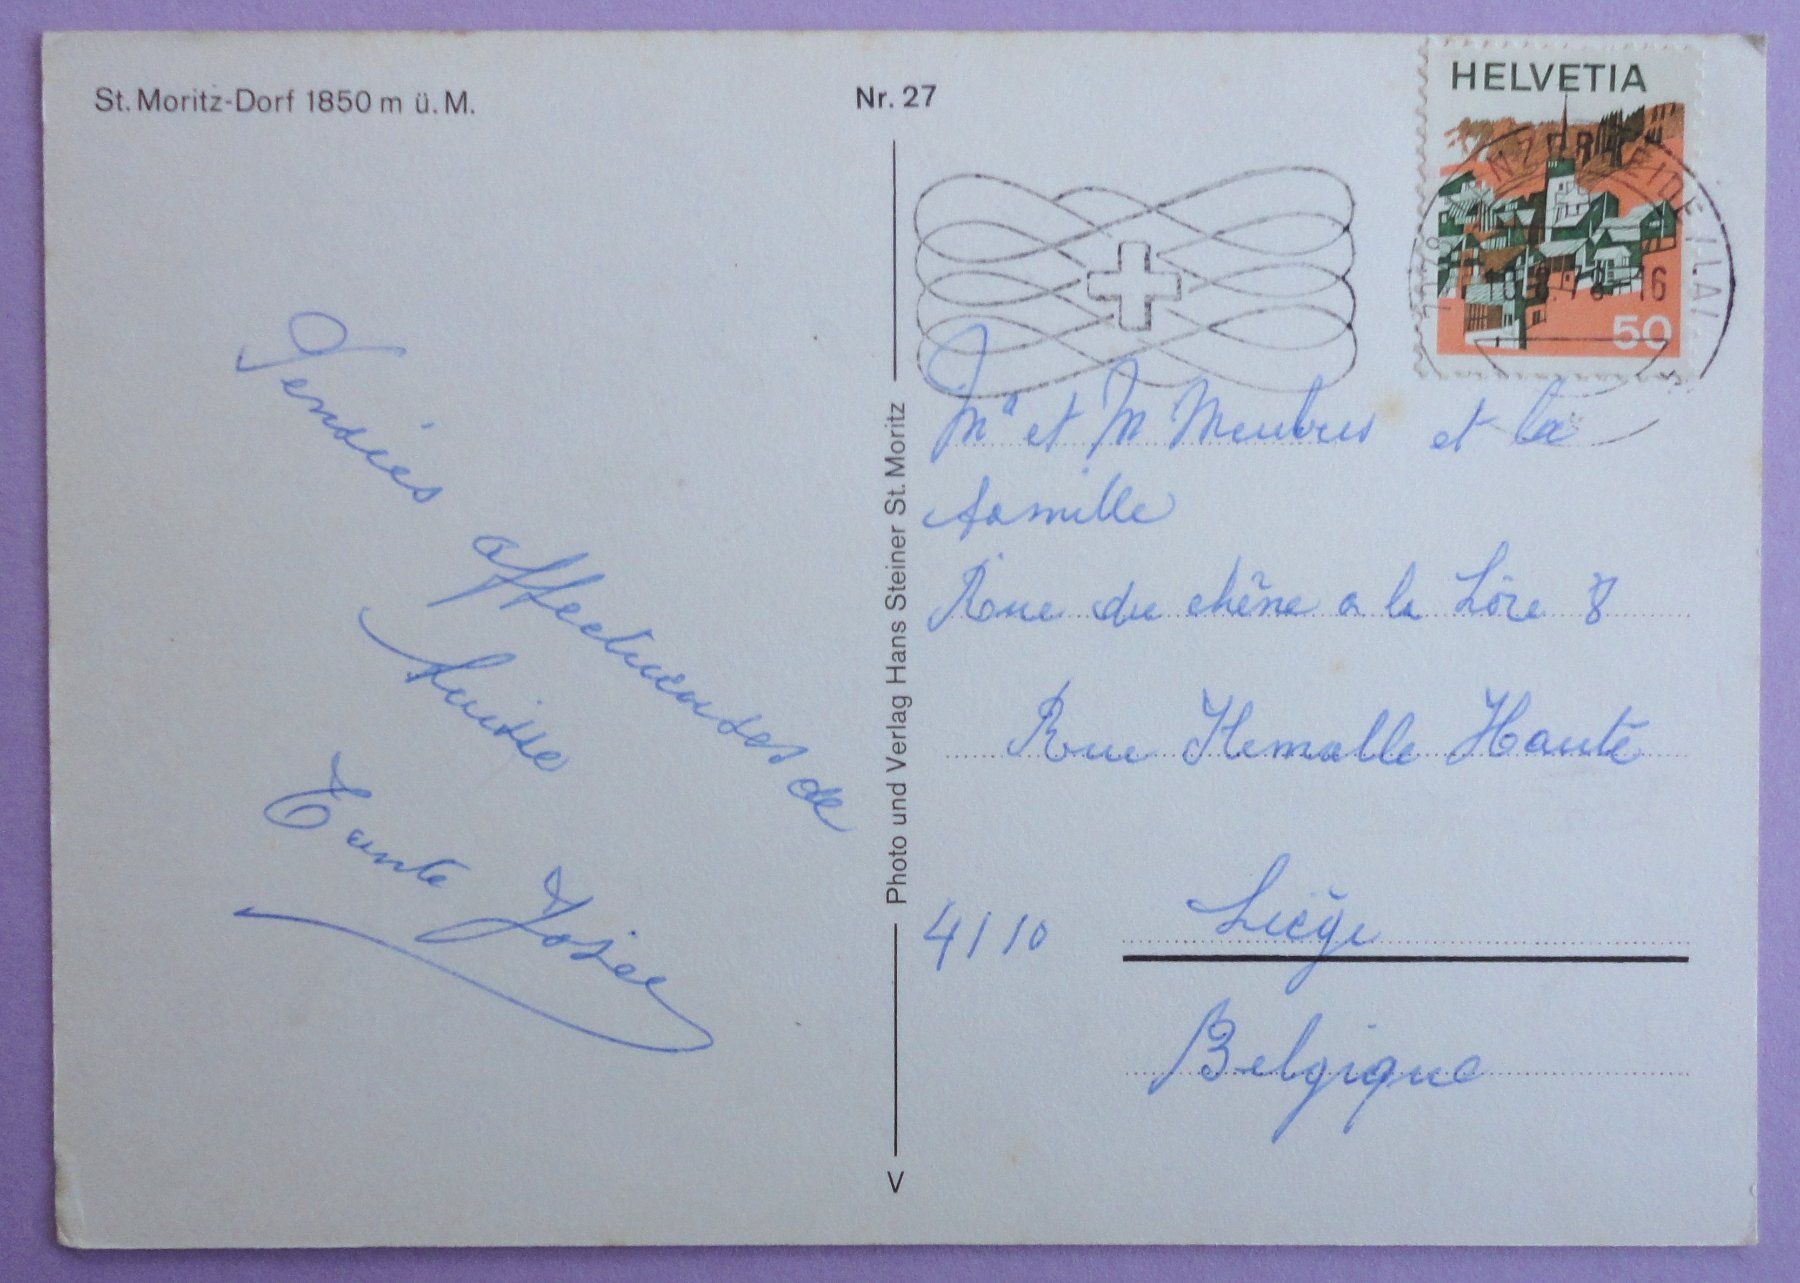 St. Moritz-Dorf 1850 m ü. M.
Nr. 27
HELVETIA
50
Pensies
affectueuses de
Suisse
Tante Josee
Photo und Verlag Hans Steiner St. Moritz
V
Me et M Meubus et la
famille
Rue du chêne a la Lôre 8
Rue Hemalle Haute
4/10
Liège
Belgique